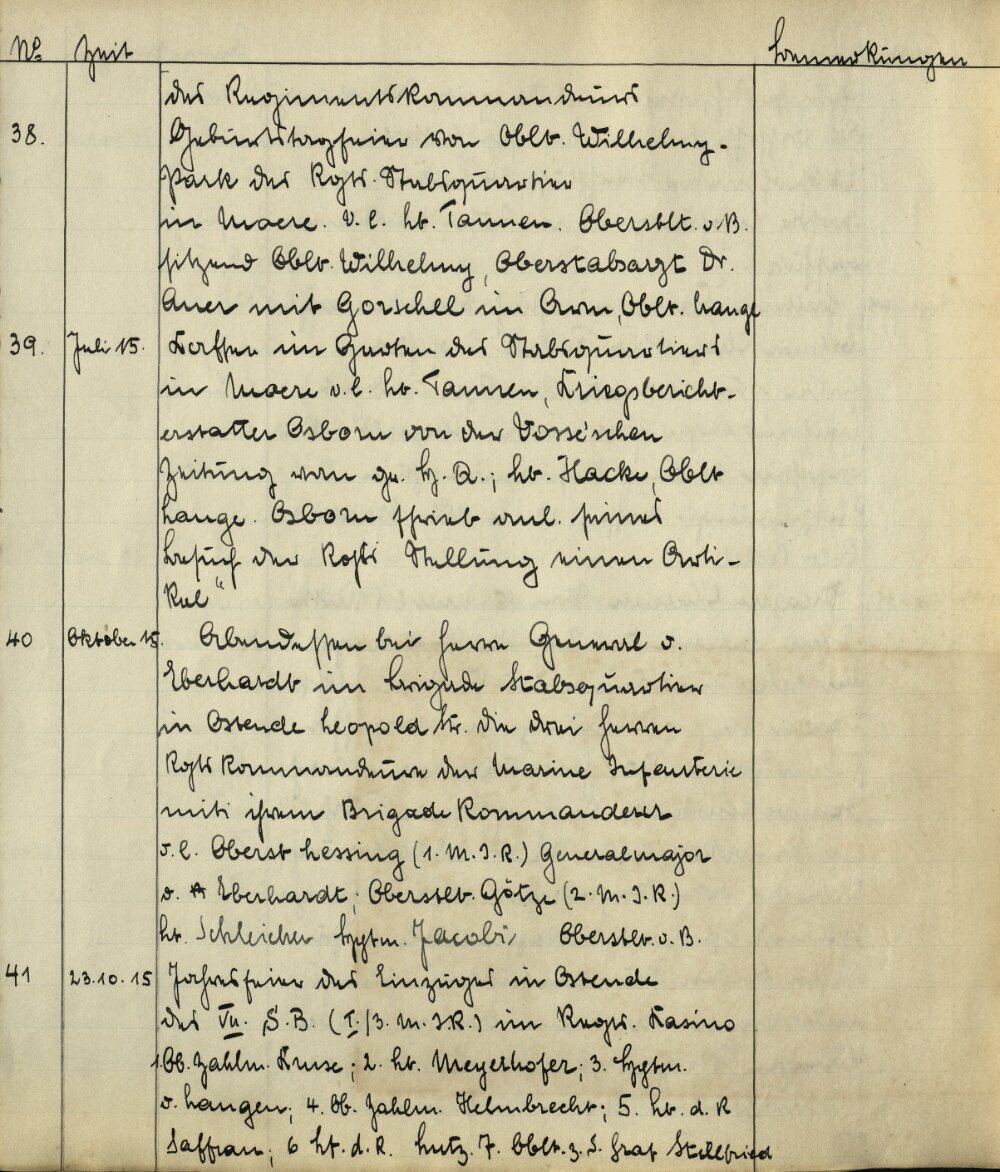 No Zeit Bemerkungen
des Regimentskommandeurs
38. Geburtstagfeier von Oblt. Wilhelmy -
Park des Rgts. Stabsquartier
in Moere. v. l. Lt. Tannen. Oberstlt. v. B.
sitzend Oblt. Wilhelmy, Oberstabsarzt Dr.
Auer mit Gorschell im Arm, Oblt. Lange
39. Juli 15. Kaffee im Garten des Stabsquartiers
in Moere v. l. Lt. Tannen, Kriegsbericht-
erstatter Osborn von der Vosse'schen
Zeitung vom gr. H. Q.; Lt. Hacke, Oblt
Lange. Osborn schrieb anl. seines
Besuch der Rgts Stellung einen Arti-
kel"
40 Oktober 15. Abendessen bei Herrn General v.
Eberhardt im Brigade Stabsquartier
in Ostende Leopold Str. die drei Herren
Rgts Kommandeure der Marine Infanterie
mit ihrem Brigade Kommandeur
v. l. Oberst Lessing (1. M. I. R.) Generalmajor
v. Eberhardt; Oberstlt. Götze (2. M. I. R.)
Lt. Schleicher Hptm. Jacobi Oberstlt. v. B.
41 23.10.15 Jahresfeier des Einzuges in Ostende
des VII. S. B. (I./3. M. I. R.) im Regts. Kasino
1. Ob. Zahlm. Kruse; 2. Lt. Meyerhofer; 3. Hptm.
v. Langen; 4. Ob. Zahlm. Helmbrecht; 5. Lt. d. R
Saffran; 6 Lt. d. R. Lutz. 7. Oblt. z. S. Graf Stillfried